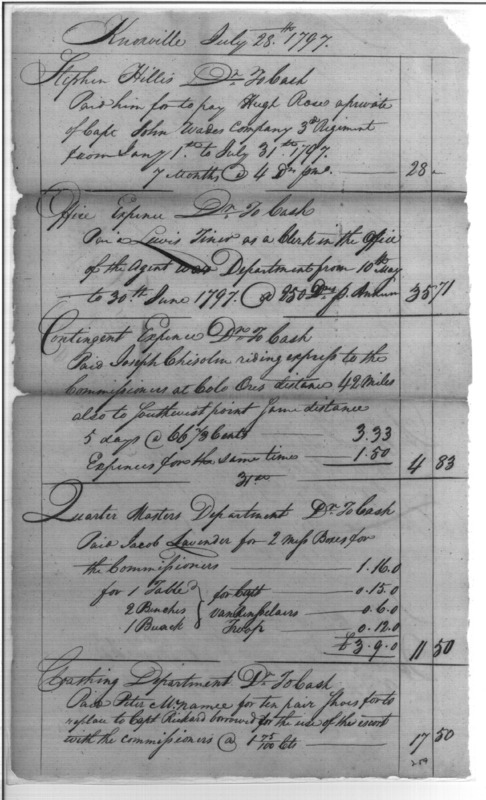 Knoxville July 28.th 1797.
Stephen Hillis Dr. To Cash
Paid him for to pay Hugh Roses a private
of Capt John Wades Company 3d Regiment
from Jany 1.st to July 31.st 1797.
7 Months @ 4 Drs 28
Office Expence Dr. To Cash
Paid Lewis Tiner as a Clerk in the Office
of the Agent War Department from 10th May
to 30th June 1797. @ 250 Drs p. Annum 35 71
Contingent Expence Dr. To Cash
Paid Joseph Chisolm riding express to the
Commissioners at Colo Ores distance 42 Miles
also to Southwest point same distance
5 days @ 66 2/3 Cents 3.33
Expences for the same time 1.50 4 83
31st
Quarter Masters Department Dr. To Cash
Paid Jacob Lavender for 2 mess Boxes for
the Commissioners 1.16.0
for 1 Table for Capt 0.15.0
2 Benches Van Renselairs 0.6.0
1 Buack Troop 0.12.0
£3.9.0 11 50
Department Dr. To Cash
Paid Peter McNamee for ten pair Shoes for to
replace to Capt Rickard borrowed for the use of the escort
with the commissioners @ 1 75/100 Cts 17 50